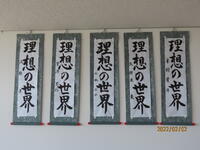 理想の世界
理想の世界
理想の世界
理想の世界
理想の世界
2022/02/02